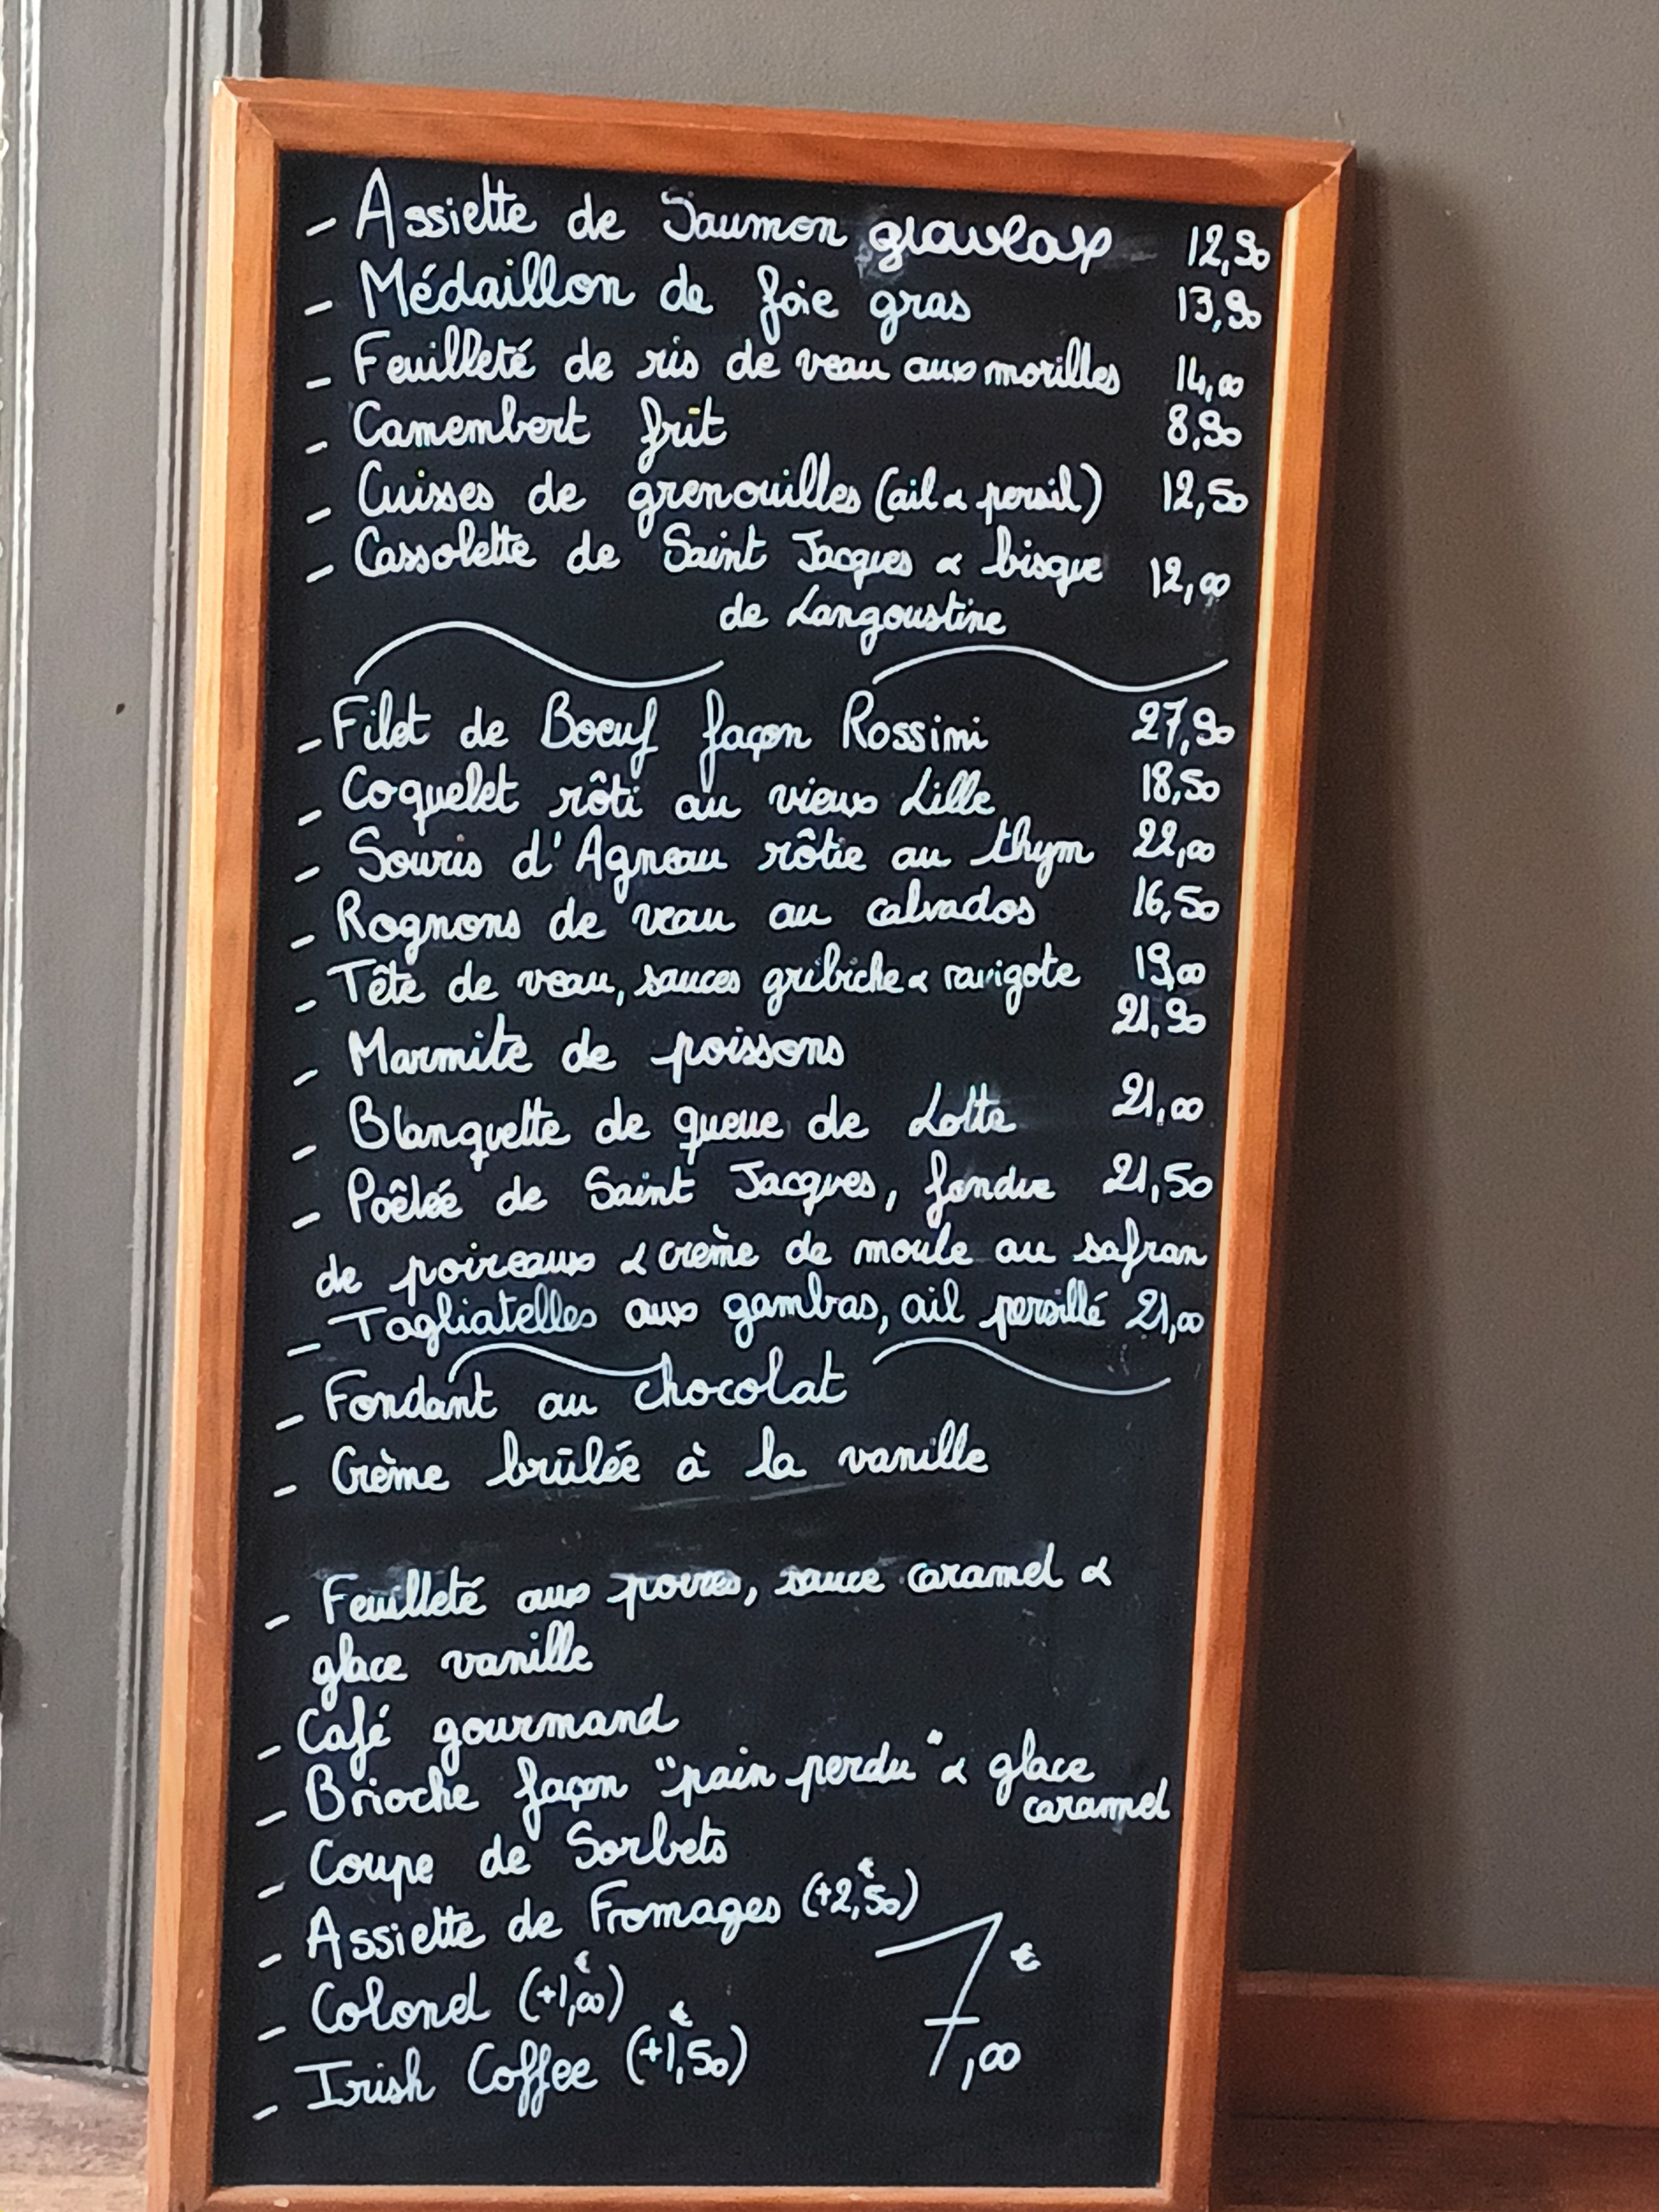 - Assiette de Saumon gravlax 12,90
- Médaillon de foie gras 13,90
- Feuilleté de ris de veau aux morilles 14,00
- Camembert frit 8,90
- Cuisses de grenouilles (ail & persil) 12,50
- Cassolette de Saint Jacques & bisque 12,00
de Langoustine
- Filet de Boeuf façon Rossini 27,90
- Coquelet rôti au vieux Lille 18,50
- Souris d'Agneau rôtie au thym 22,00
- Rognons de veau au calvados 16,50
- Tête de veau, sauces gribiche & ravigote 19,00
- Marmite de poissons 21,90
- Blanquette de queue de Lotte 21,00
- Poêlée de Saint Jacques, fondue 21,50
de poireaux & crème de moule au safran
- Tagliatelles aux gambas, ail persillé 21,00
- Fondant au chocolat
- Crème brûlée à la vanille
- Feuilleté aux poires, sauce caramel &
glace vanille
- Café gourmand
- Brioche façon "pain perdu" & glace
caramel
- Coupe de Sorbets
- Assiette de Fromages (+2,50€)
- Colonel (+1,00€)
- Irish Coffee (+1,50€)
7,00€